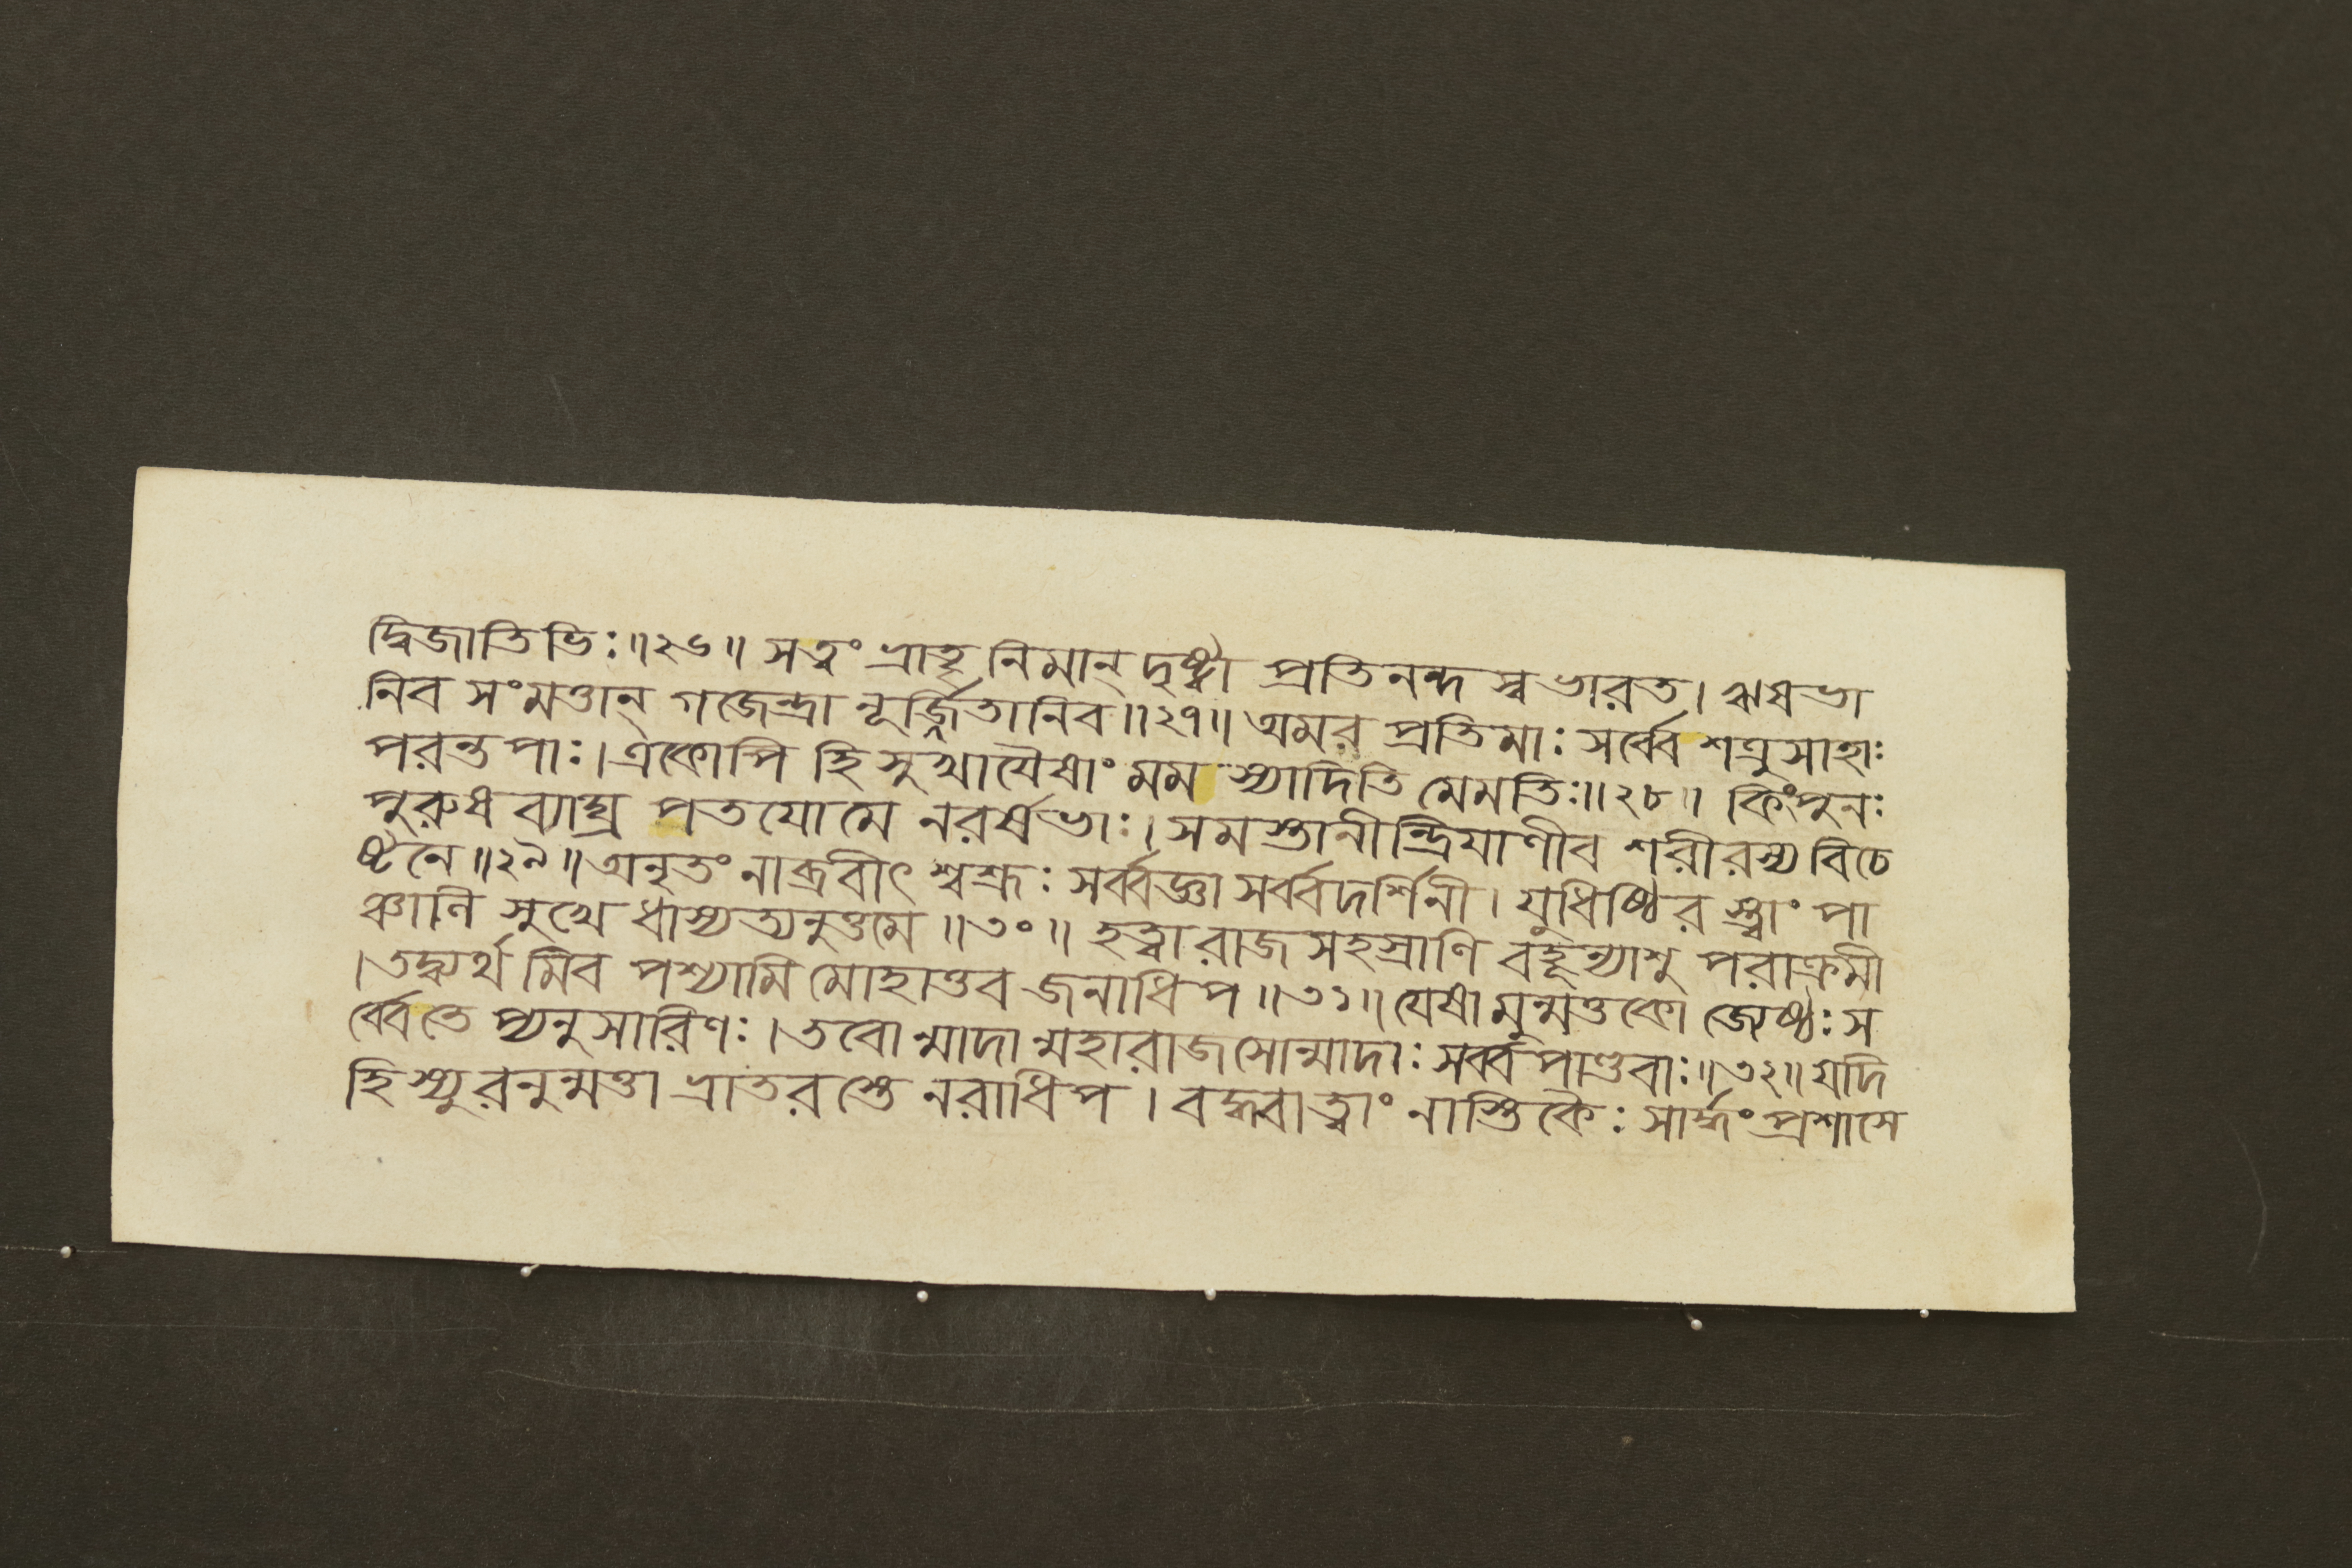 দ্বিজাতিভিঃ॥২৬॥ সত্বং ভ্রাতৃনিমান্ দৃষ্ট্বা প্রতিনন্দস্ব ভারত। ঋষভা
নিব সংমত্তান্ গজেন্দ্রা নূর্জ্জিতানিব॥২৭॥ অমর প্রতিমাঃ সর্ব্বে শত্রুসাহাঃ
পরন্তপাঃ। একোপি হি সুখাযৈষাং মম স্যাদিতি মেমতিঃ॥২৮॥ কিংপুনঃ
পুরুষব্যাঘ্র পতযোমে নরর্ষভাঃ। সমস্তানীন্দ্রিযাণীব শরীরস্য বিচে
ষ্টনে॥২৯॥ অনৃতং নাব্রবীৎ শ্বশ্রূঃ সর্ব্বজ্ঞা সর্ব্বদর্শিনী। যুধিষ্ঠির স্ত্বাং পা
ঞ্চানি সুখে ধাস্যত্যনুত্তমে॥৩০॥ হত্বা রাজসহস্রাণি বহূন্যাশু পরাক্রমী
।তদ্ব্যর্থমিব পশ্যামি মোহাত্তব জনাধিপ॥৩১॥ যেষামুন্মত্তকো জ্যেষ্ঠঃ স
র্ব্বেতে প্যনুসারিণঃ। তবোন্মাদান্মহারাজসোন্মাদাঃ সর্ব্বপাণ্ডবাঃ॥৩২॥ যদি
হি স্যুরনুন্মত্তা ভ্রাতরস্তে নরাধিপ। বদ্ধ্বাত্বাং নাস্তিকৈঃ সার্দ্ধং প্রশাসে